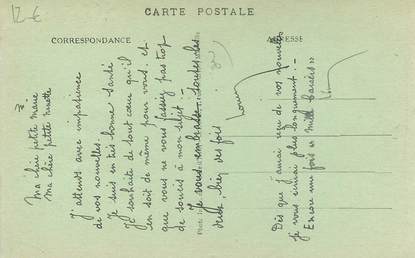 12 €
CARTE POSTALE
CORRESPONDANCE
ADRESSE
Ma chère petite Marie
Ma chère petite
J'attends avec impatience
de vos nouvelles.
Je suis en très bonne santé
Je souhaite de tout cœur qu'il
en soit de même pour vous. et
que vous ne vous fassiez pas trop
de soucis à mon sujet :-
Je vous embrasse toutes les
deux, bien des fois
Dès que j'aurai reçu de vos nouvelles
je vous écrirai plus longuement. -
Encore une fois mille baisers